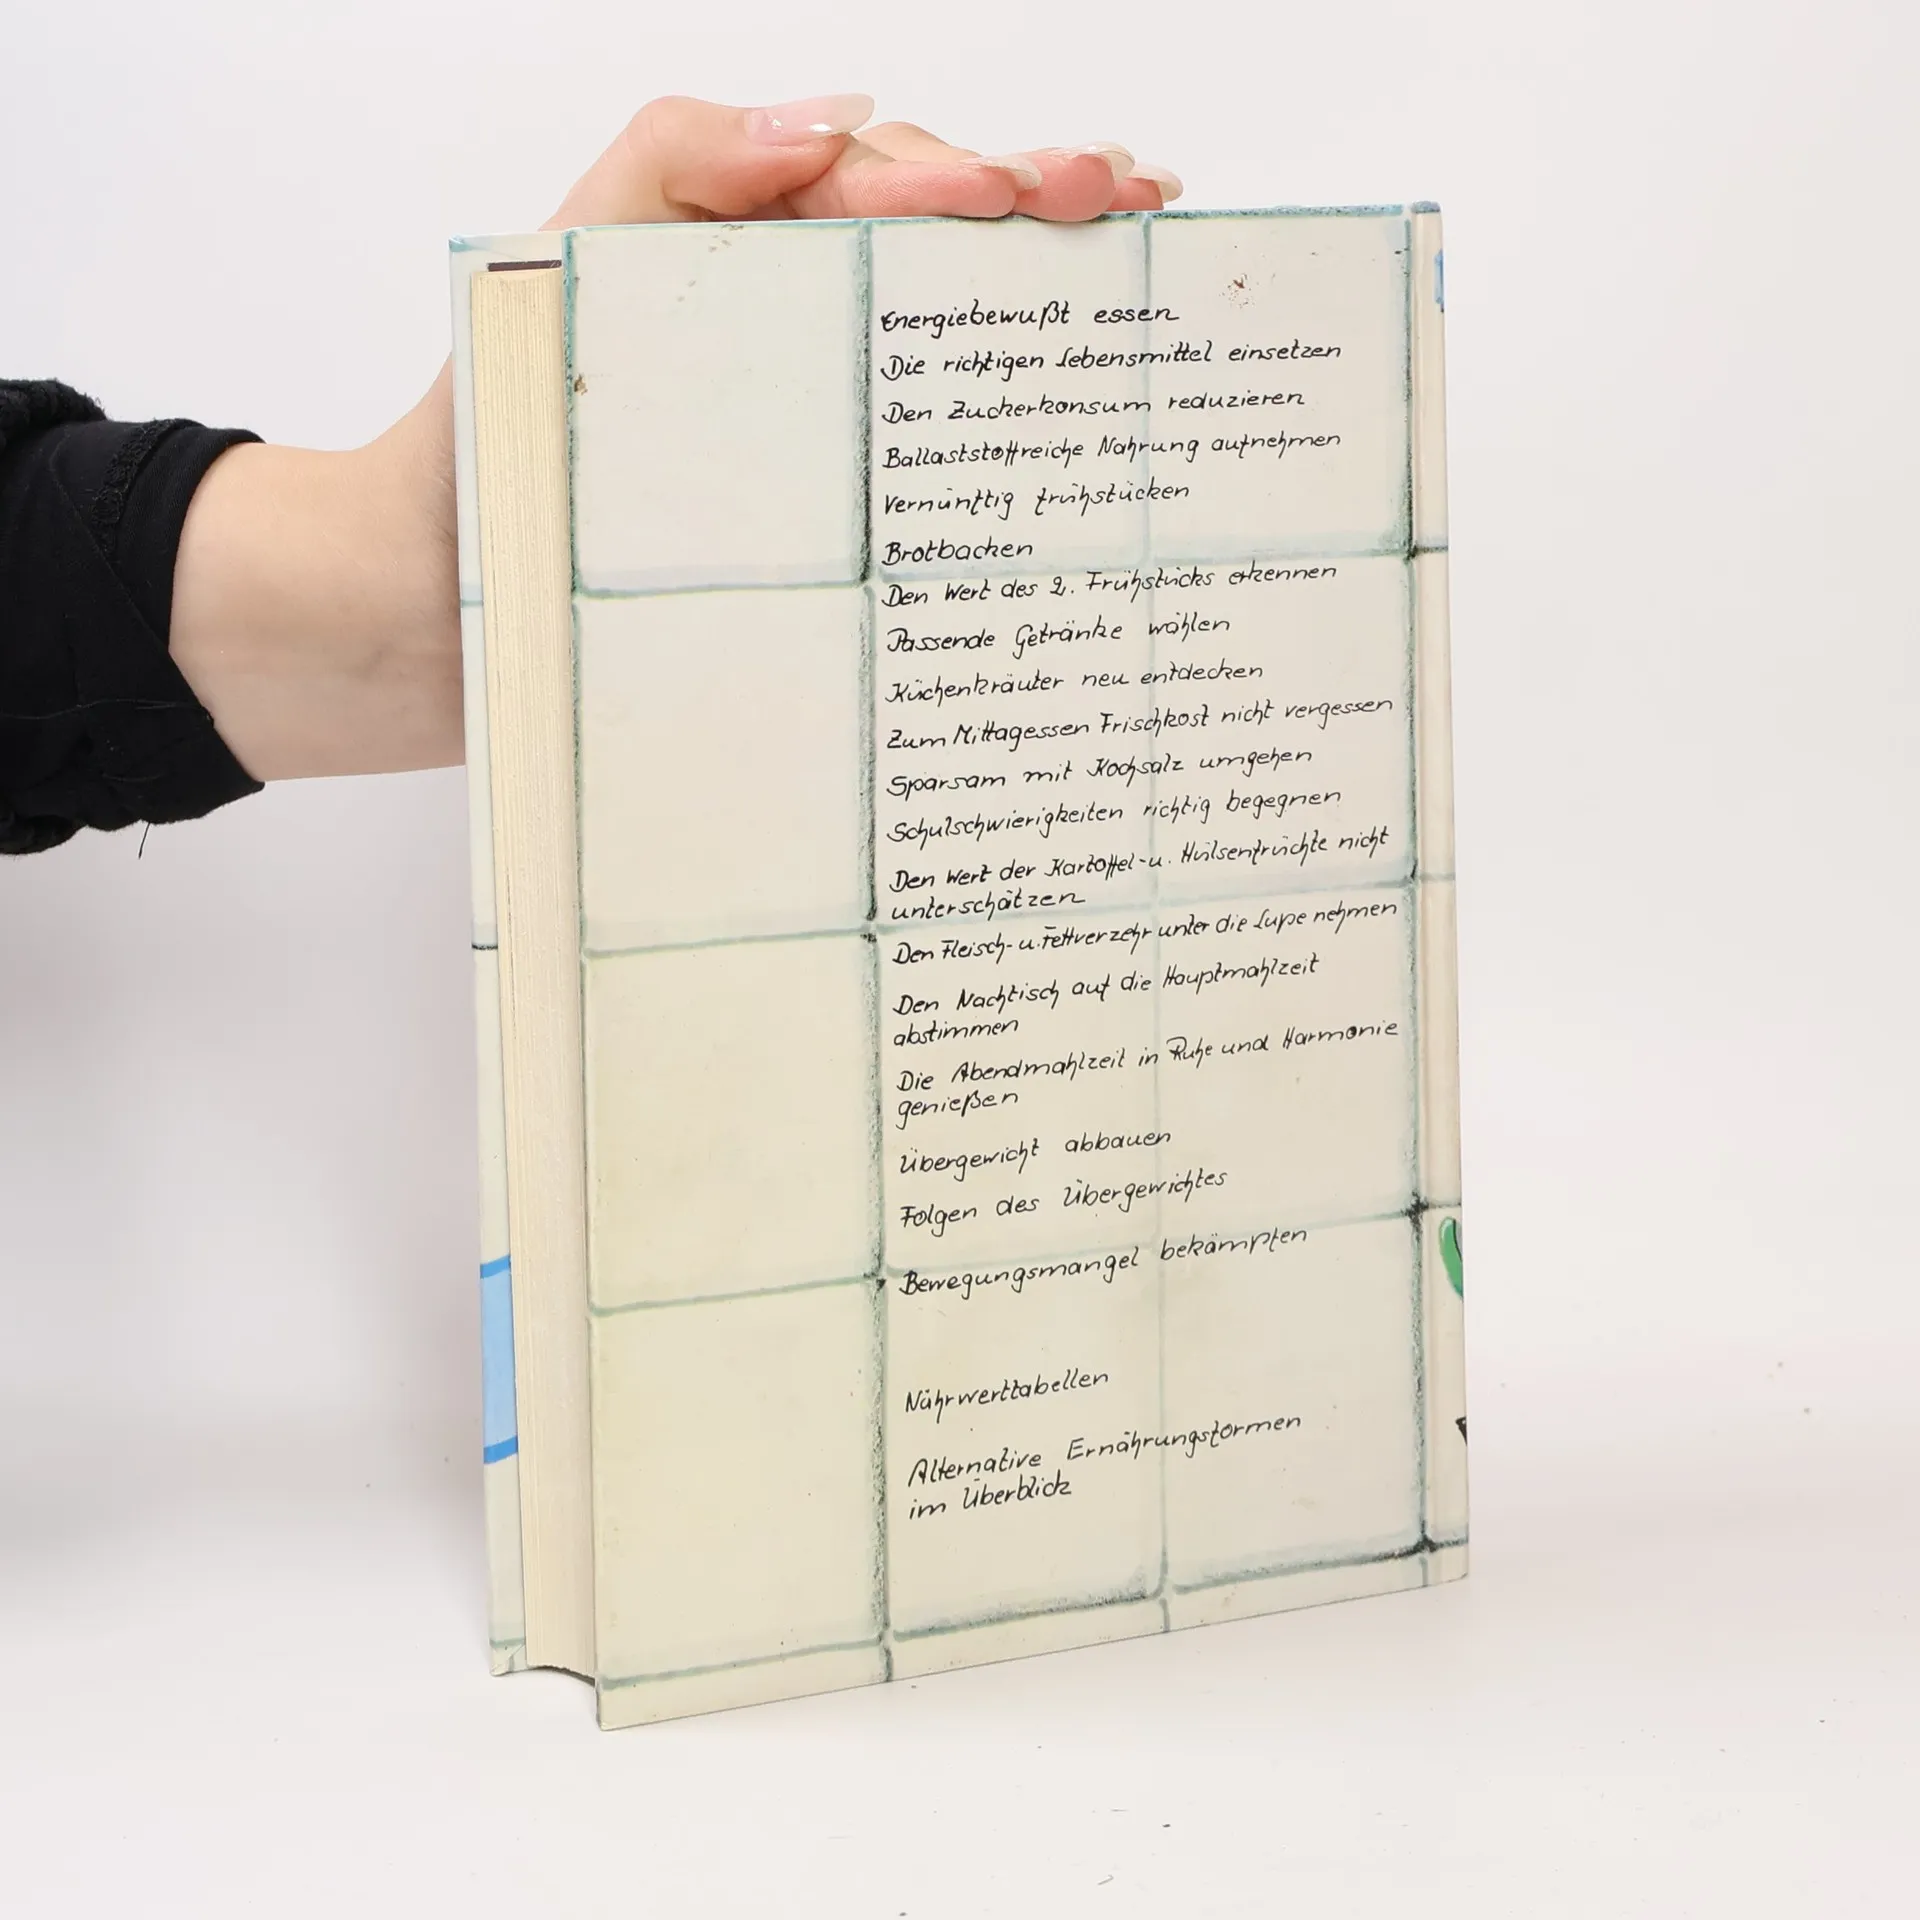 Energiebewußt essen
Die richtigen Lebensmittel einsetzen
Den Zuckerkonsum reduzieren
Ballaststoffreiche Nahrung aufnehmen
Vernünftig frühstücken
Brotbacken
Den Wert des 2. Frühstücks erkennen
Passende Getränke wählen
Küchenkräuter neu entdecken
Zum Mittagessen Frischkost nicht vergessen
Sparsam mit Kochsalz umgehen
Schulschwierigkeiten richtig begegnen
Den Wert der Kartoffel-u. Hülsenfrüchte nicht
unterschätzen
Den Fleisch-u. Fettverzehr unter die Lupe nehmen
Den Nachtisch auf die Hauptmahlzeit
abstimmen
Die Abendmahlzeit in Ruhe und Harmonie
genießen
Übergewicht abbauen
Folgen des Übergewichtes
Bewegungsmangel bekämpfen
Nährwerttabellen
Alternative Ernährungsformen
im Überblick